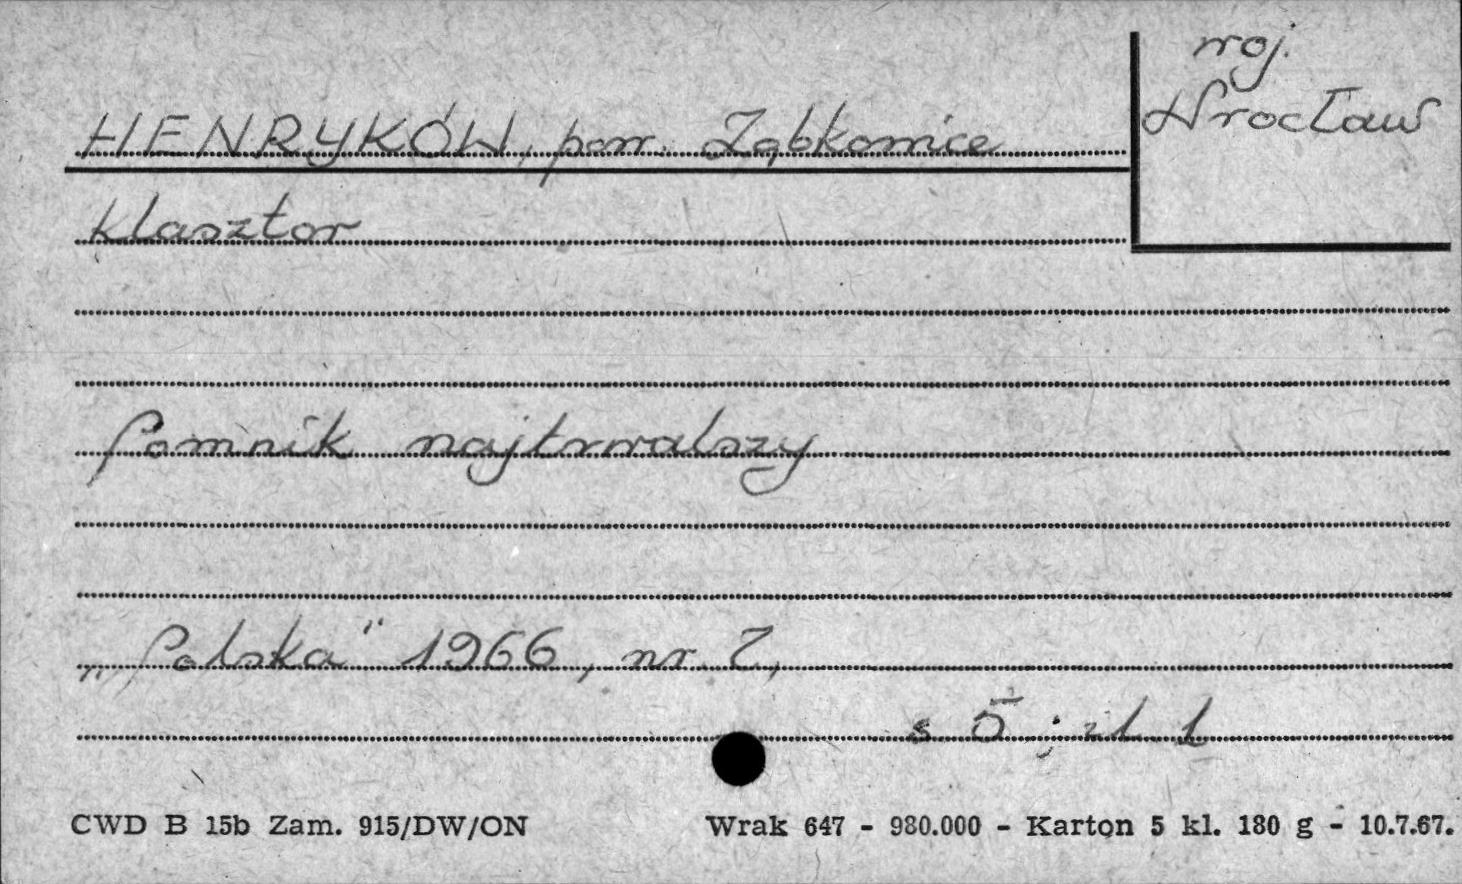 woj.
Wrocław
HENRYKÓW, pow. Ząbkowice
klasztor
Pomnik najtrwalszy
„Polska" 1966, nr. 2,
s 5 ; zł 1
CWD B 15b Zam. 915/DW/ON Wrak 647 - 980.000 - Karton 5 kl. 180 g - 10.7.67.